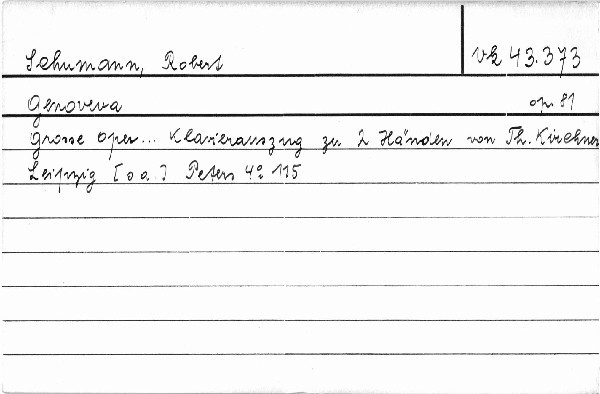 Schumann, Robert vk 43.373
Genoveva op. 81
Grosse Oper... Klavierauszug zu 2 Händen von Th. Kirchner
Leipzig [o a.] Peters 4° 115